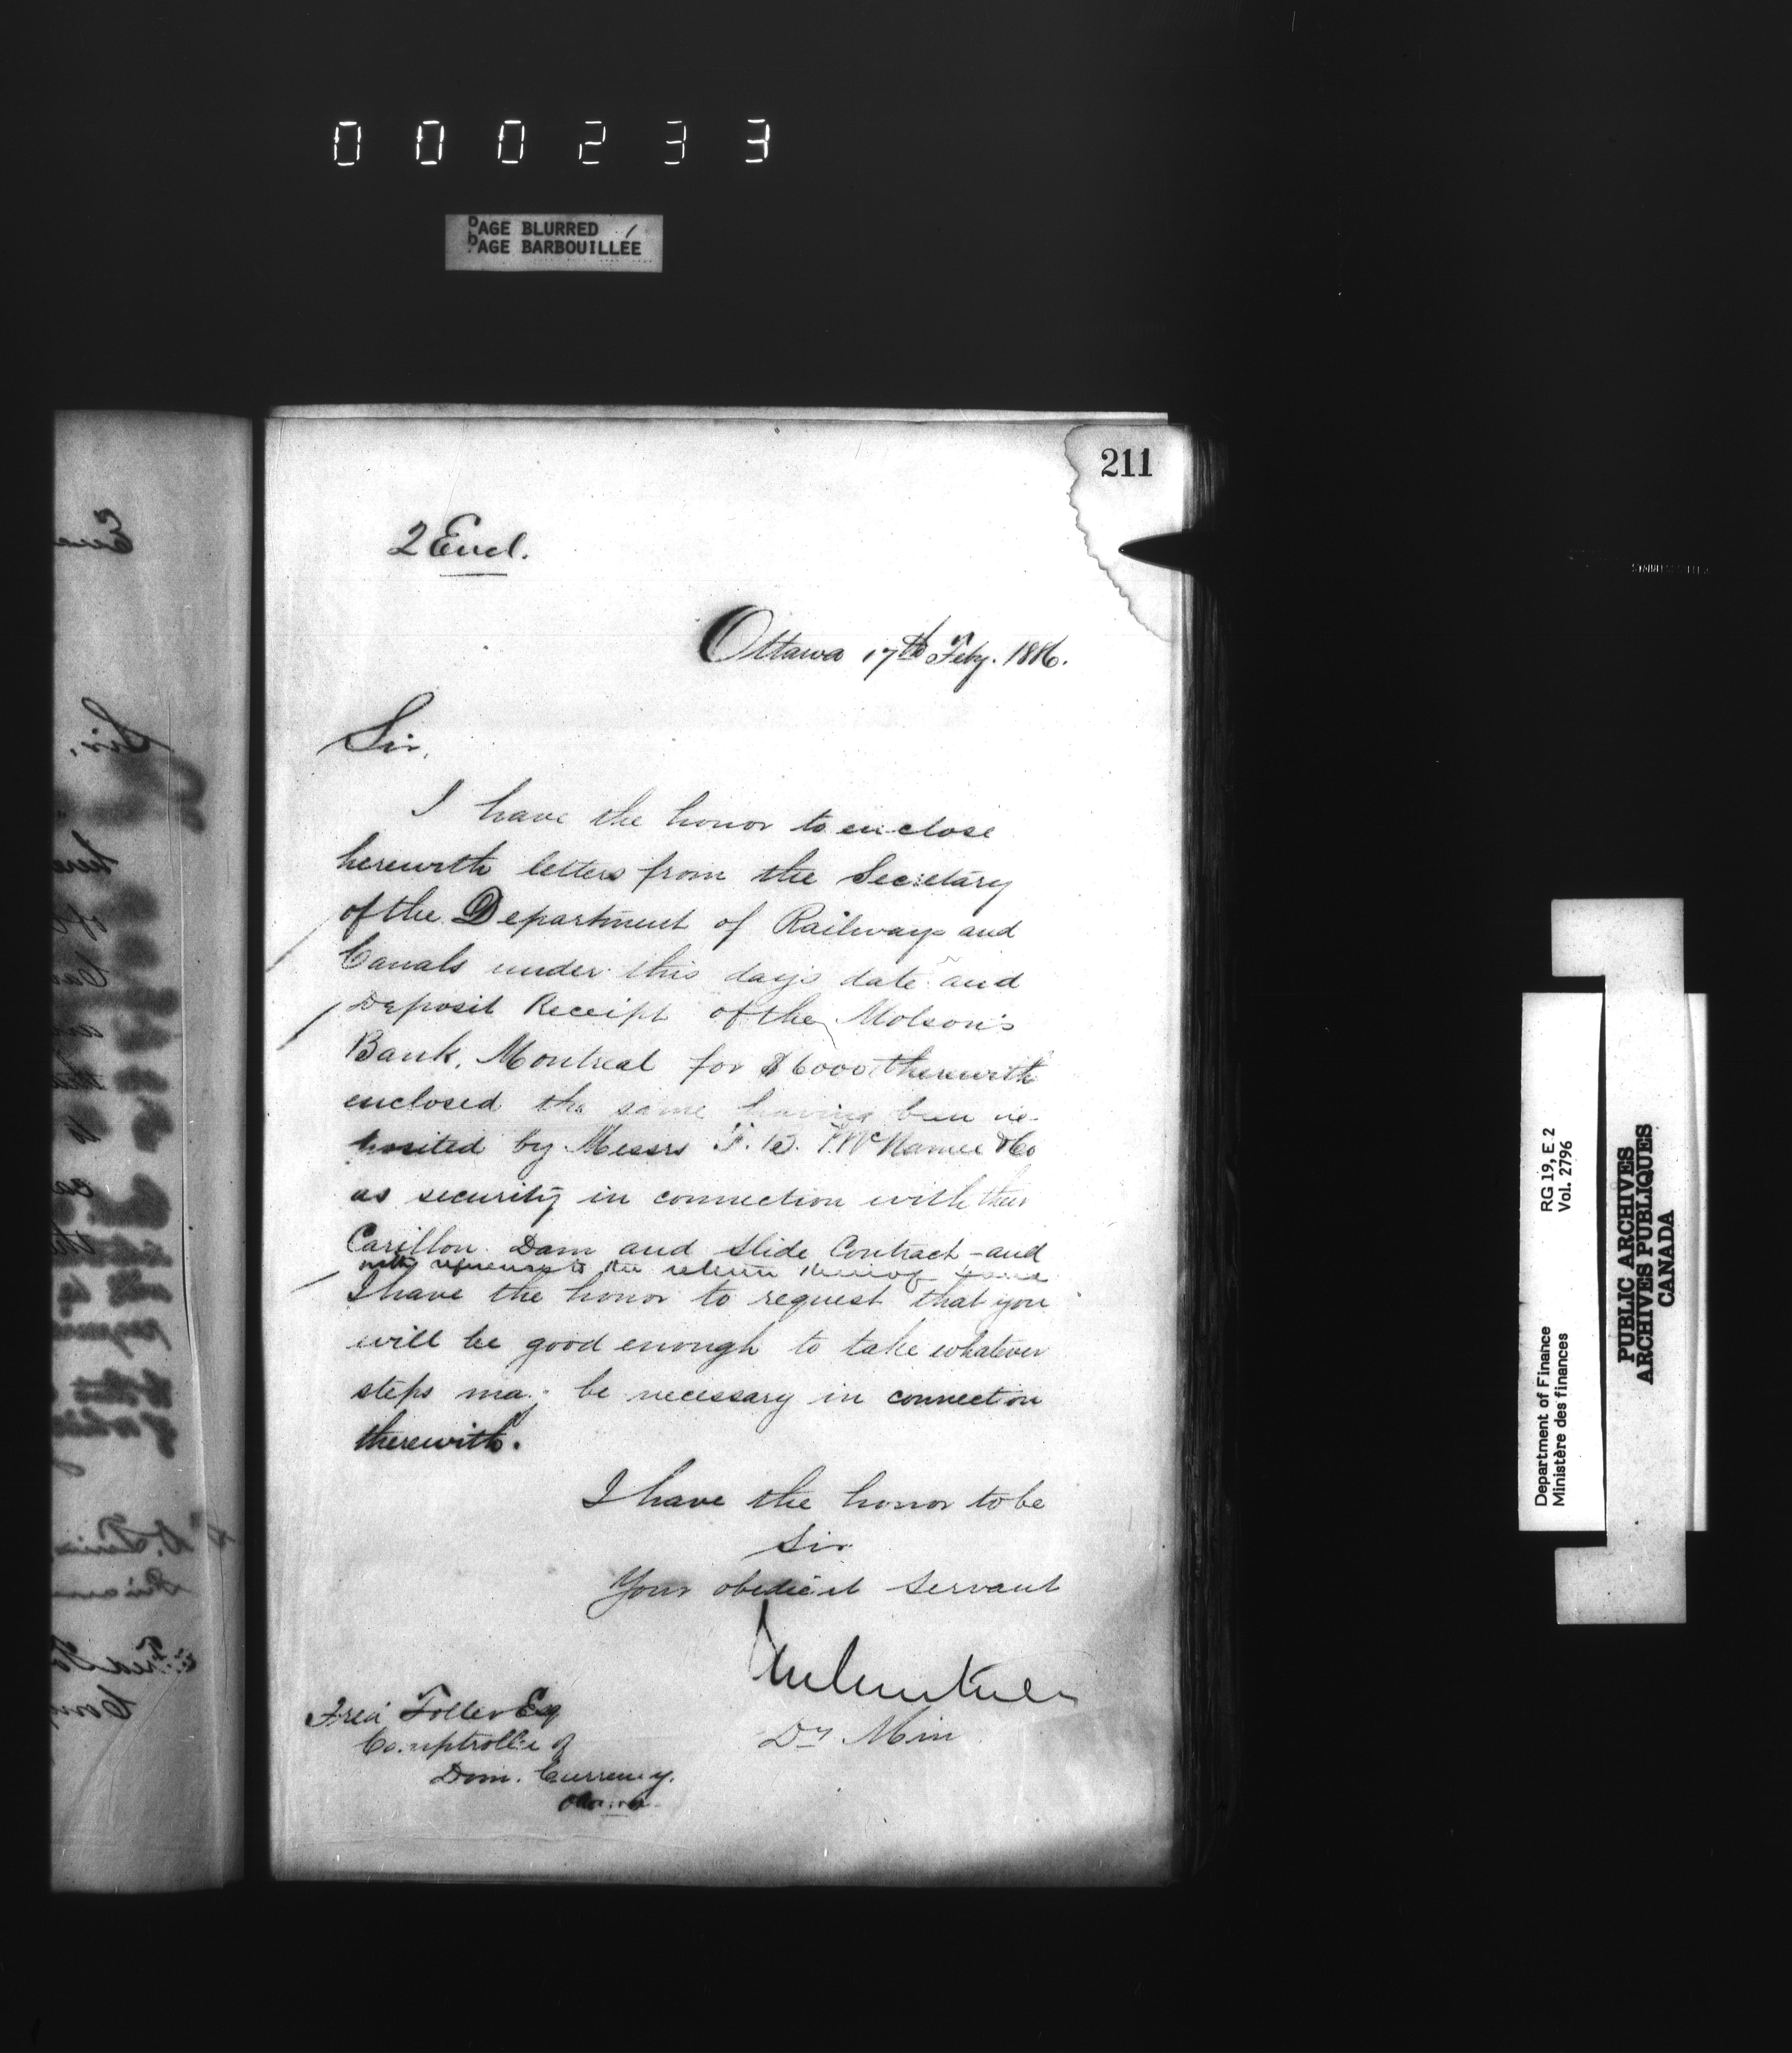 000233
PAGE BLURRED
PAGE BARBOUILLÉE
211
2 Encl.
Ottawa 17th Feby. 1886.
Sir,
I have the honor to enclose
herewith letters from the Secretary
of the Department of Railways and
Canals under this day's date and
Deposit Receipt of the Molson's
Bank, Montreal for $6000 therewith
enclosed the same having been de-
posited by Messrs F. B. McNamee & Co
as security in connection with their
Carillon Dam and Slide Contract - and
with reference to the return thereof
I have the honor to request that you
will be good enough to take whatever
steps may be necessary in connection
therewith.
I have the honor to be
Sir
Your obedient servant
Dy Min
Fred Toller Esq
Comptroller of
Dom. Currency.
Ottawa
Department of Finance
Ministère des finances
RG 19, E 2
Vol. 2796
PUBLIC ARCHIVES
ARCHIVES PUBLIQUES
CANADA